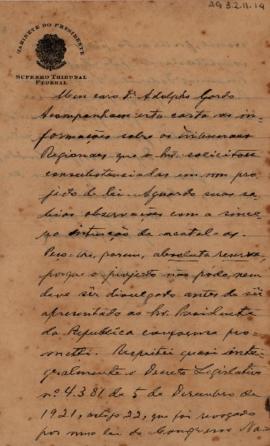 AG 3.2.11.14
GABINETE DO PRESIDENTE
SUPREMO TRIBUNAL
FEDERAL
Meu caro Dr. Adolpho Gordo
Acompanham esta carta as in-
formações sobre os Tribunaes
Regionaes que o Sr. solicitou
consubstanciadas em um pro-
jecto de lei. Aguardo suas sa-
bias observações com a since-
ra intenção de acatal-as.
Peço-lhe, porem, absoluta reserva
porque o projecto não pode nem
deve ser divulgado antes de ser
apresentado ao Sr. Presidente
da Republica conforme pro-
metti. Respeitei quasi inte-
gralmente o Decreto Legislativo
nº 4.381 de 5 de Dezembro de
1921, artigo 22, que foi revogado
por uma lei do Congresso Na-